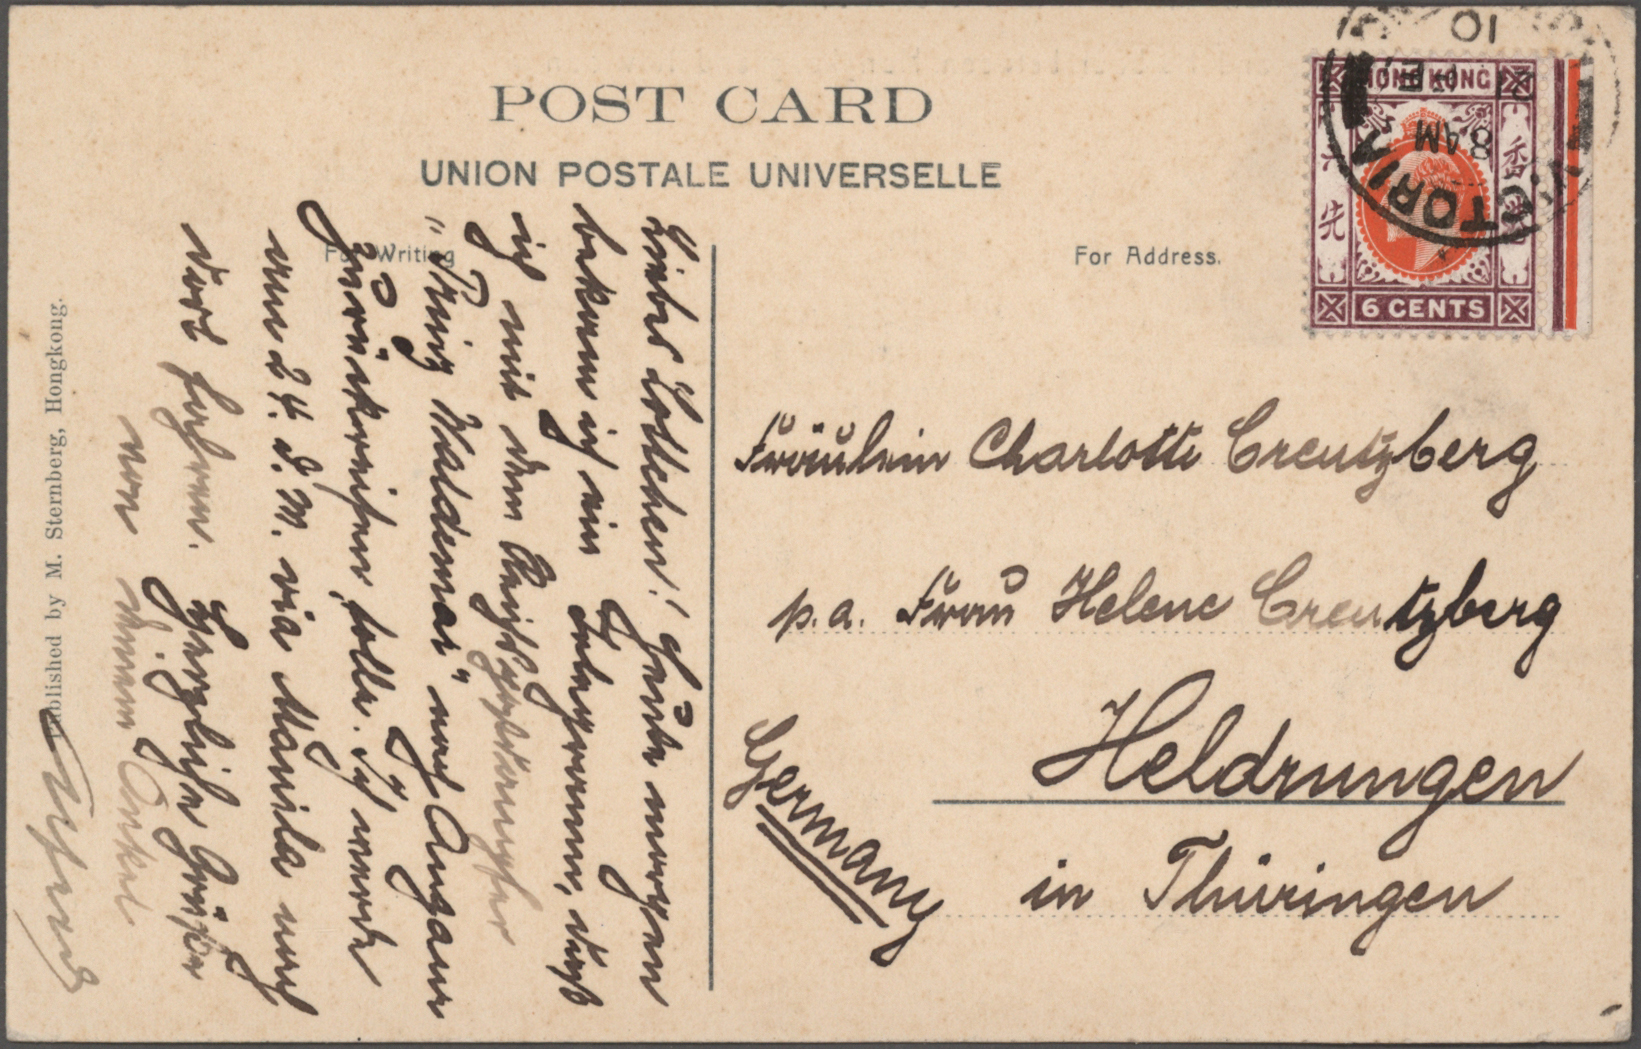 POST CARD
UNION POSTALE UNIVERSELLE
For Writing
For Address.
HONG KONG
香港
六先
6 CENTS
VICTORIA
8 AM
21 FE
10
Liebes Lottchen! Heute morgen
bekam ich ein Telegramm, daß
ich mit dem Reichspostdampfer
„Prinz Waldemar" nach Angaur
zurückreisen solle. Ich werde
am 24. d. M. via Manila nach
dort fahren. Herzliche Grüße
von Deinem Onkel
Fräulein Charlotte Creutzberg
p. a. Frau Helene Creutzberg
Heldrungen
in Thüringen
Germany
Published by M. Sternberg, Hongkong.